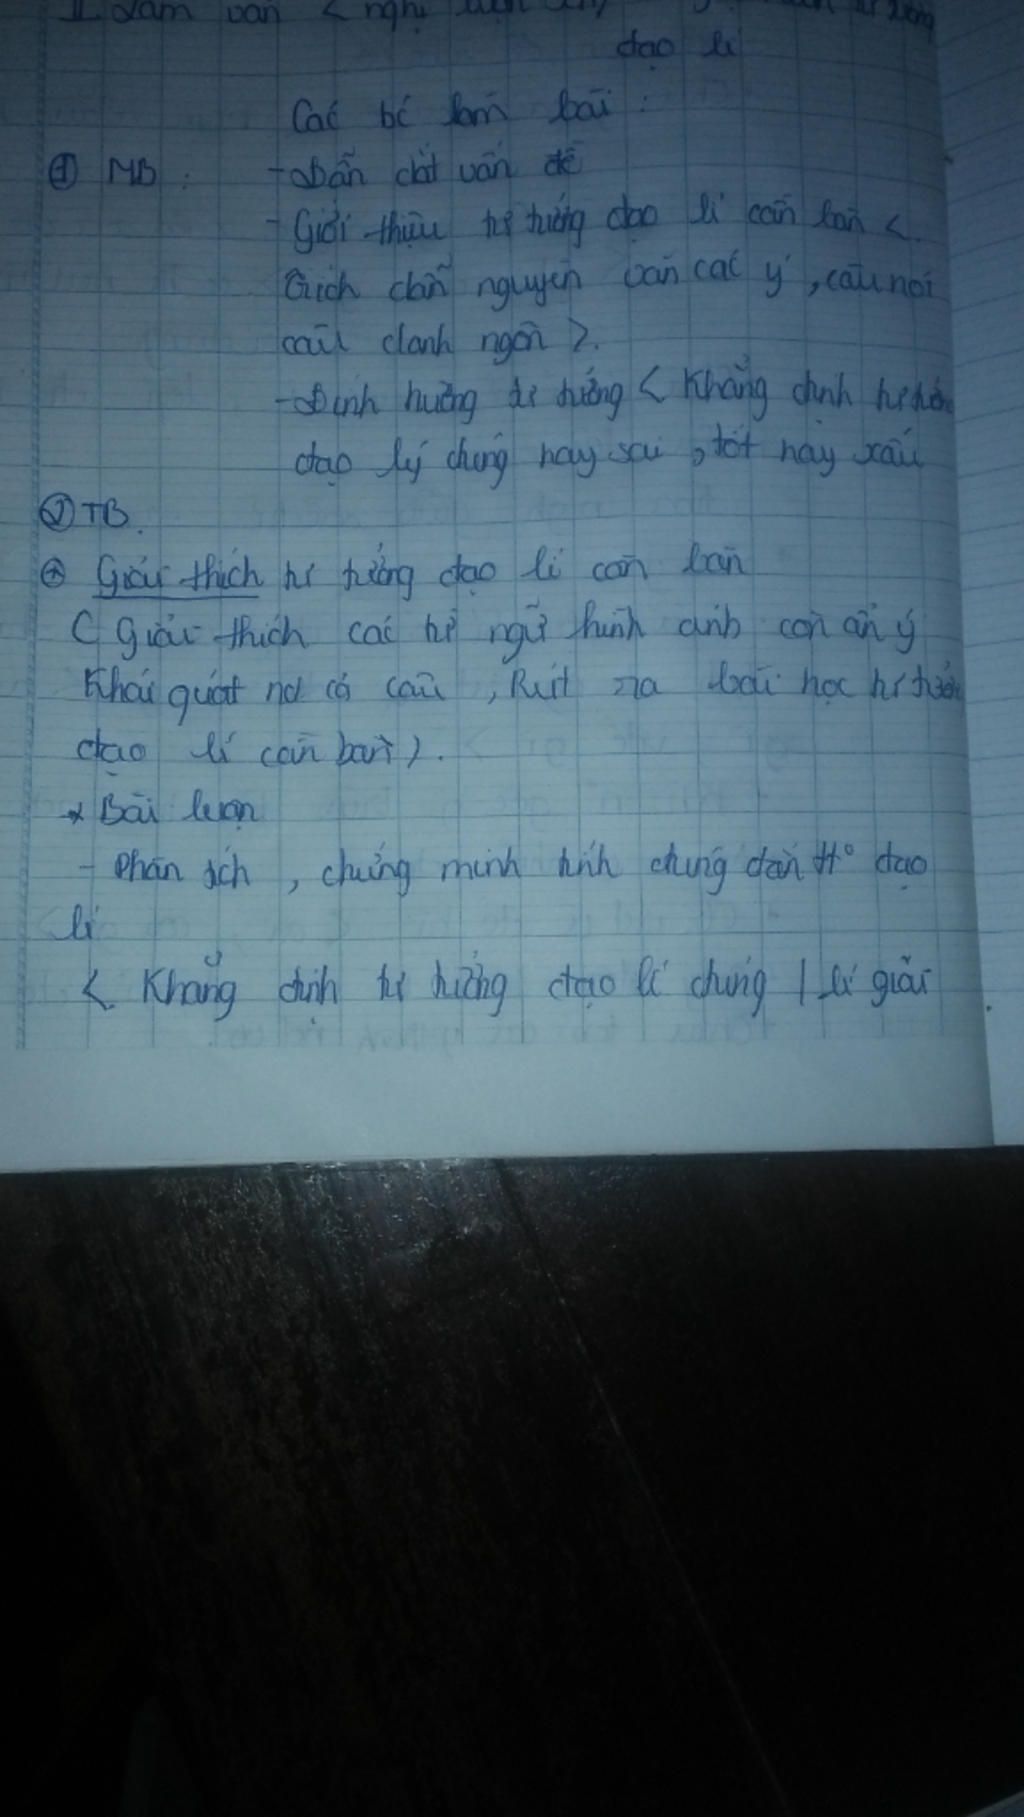 II Làm văn < nghị luận
đạo lí
Các bć làm bài :
① MB : - Dẫn dắt vấn đề
- Giới thiệu tư tưởng đạo lí cần bàn <
Trích dẫn nguyên văn các ý, câu nói
câu danh ngôn >.
- Định hướng tư tưởng < Khẳng định tư tưởng
đạo lý đúng hay sai, tốt hay xấu
② TB.
⊛ Giải thích tư tưởng đạo lí cần bàn
( Giải thích các từ ngữ hình ảnh còn ẩn ý
Khái quát nd cả câu, Rút ra bài học tư tưởng
đạo lí cần bàn ).
* Bài luận
- Phân tích, chứng minh tính đúng đắn tt° đạo
lí
< Khẳng định tư tưởng đạo lí đúng / Lí giải